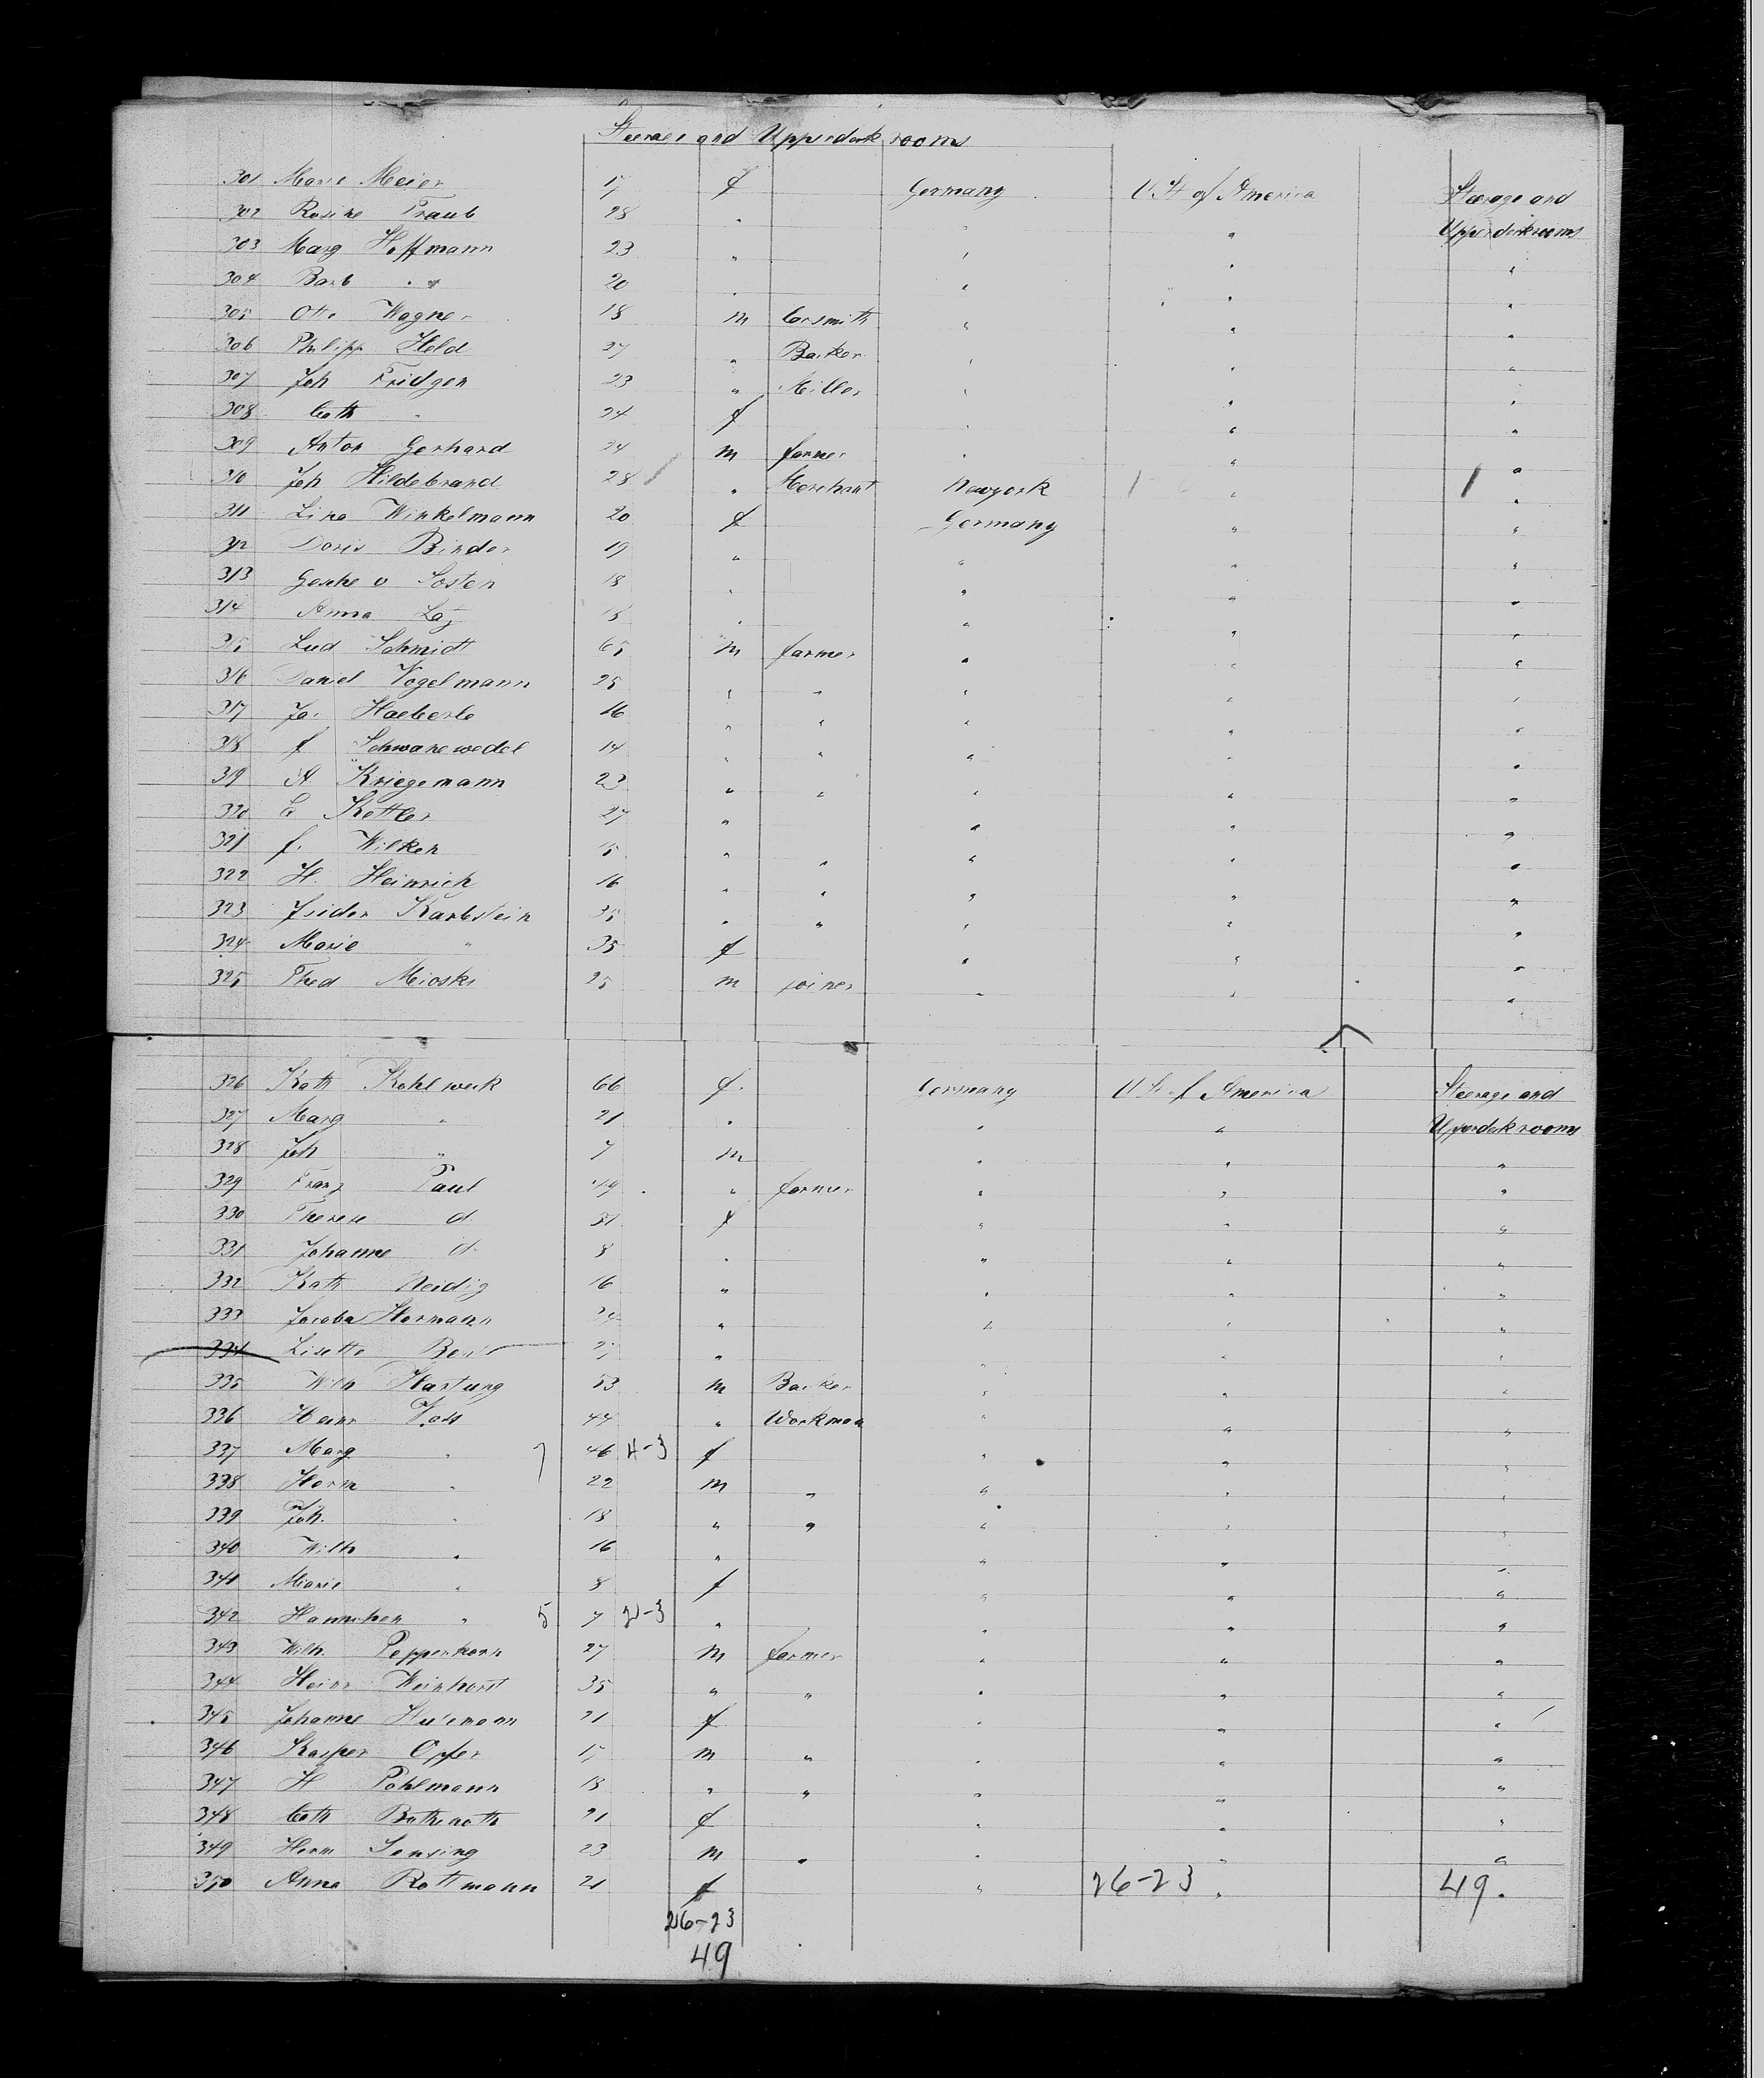 Steerage and Upperdeck rooms
301 Marie Meier 17 f Germany U St of America Steerage and
302 Rosine Traub 28 " " " Upperdeckrooms
303 Marg Hoffmann 23 " " " "
304 Barb " 20 " " " "
305 Otto Wagner 18 m Corsmith " " "
306 Philipp Held 27 " Backer " " "
307 Joh Fridgen 23 " Miller " " "
308 Cath " 24 f " " "
309 Anton Gerhard 24 m farmer " " "
310 Joh Hildebrand 28 " Merchant Newyork " "
311 Lina Winkelmann 20 f Germany " "
312 Doris Binder 19 " " " "
313 Gesche v Sosten 18 " " " "
314 Anna " " " "
315 Lud Schmidt 65 m farmer " " "
316 Daniel Vogelmann 25 " " " " "
317 Jac Haeberle 16 " " " " "
318 f Schwanewedel 14 " " " " "
319 A. Kriegemann 23 " " " " "
320 Kettler 27 " " " "
321 f. Wilken 15 " " " " "
322 H. Heinrich 16 " " " " "
323 Isidor Karbstein 35 " " " " "
324 Marie " 35 f " " "
325 Thed Mioski 25 m joiner " " "
326 Kath Kohlweck 66 f. Germany U St of America Steerage and
327 Marg " 21 " " " Upperdeckrooms
328 Joh " 7 m " " "
329 Franz Paul 49 " farmer " " "
330 Therese d. 31 f " " "
331 Johanne d. 8 " " " "
332 Kath Neidig 16 " " " "
333 Jacoba Hermann 24 " " " "
334 Lisette " " " "
335 Wilh Hartung 53 m Backer " " "
336 Heinr Voss 44 " Workman " " "
337 Marg " 7 46 4-3 f " " "
338 Herm " 22 m " " " "
339 Joh. " 18 " " " " "
340 Wilh " 16 " " " "
341 Marie " 8 f " " "
342 Hannchen " 5 7 2-3 " " " "
343 Wilh. Pepperkorn 27 m farmer " " "
344 Heinr Weinhorst 35 " " " " "
345 Johanne Husemann 21 f " " "
346 Kasper Opfer 17 m " " " "
347 H Pohlmann 18 " " " " "
348 Cath 21 f " " "
349 Herm Sensing 23 m " " " "
350 Anna Rottmann 21 f " 26-23 " 49 "
26-23
49